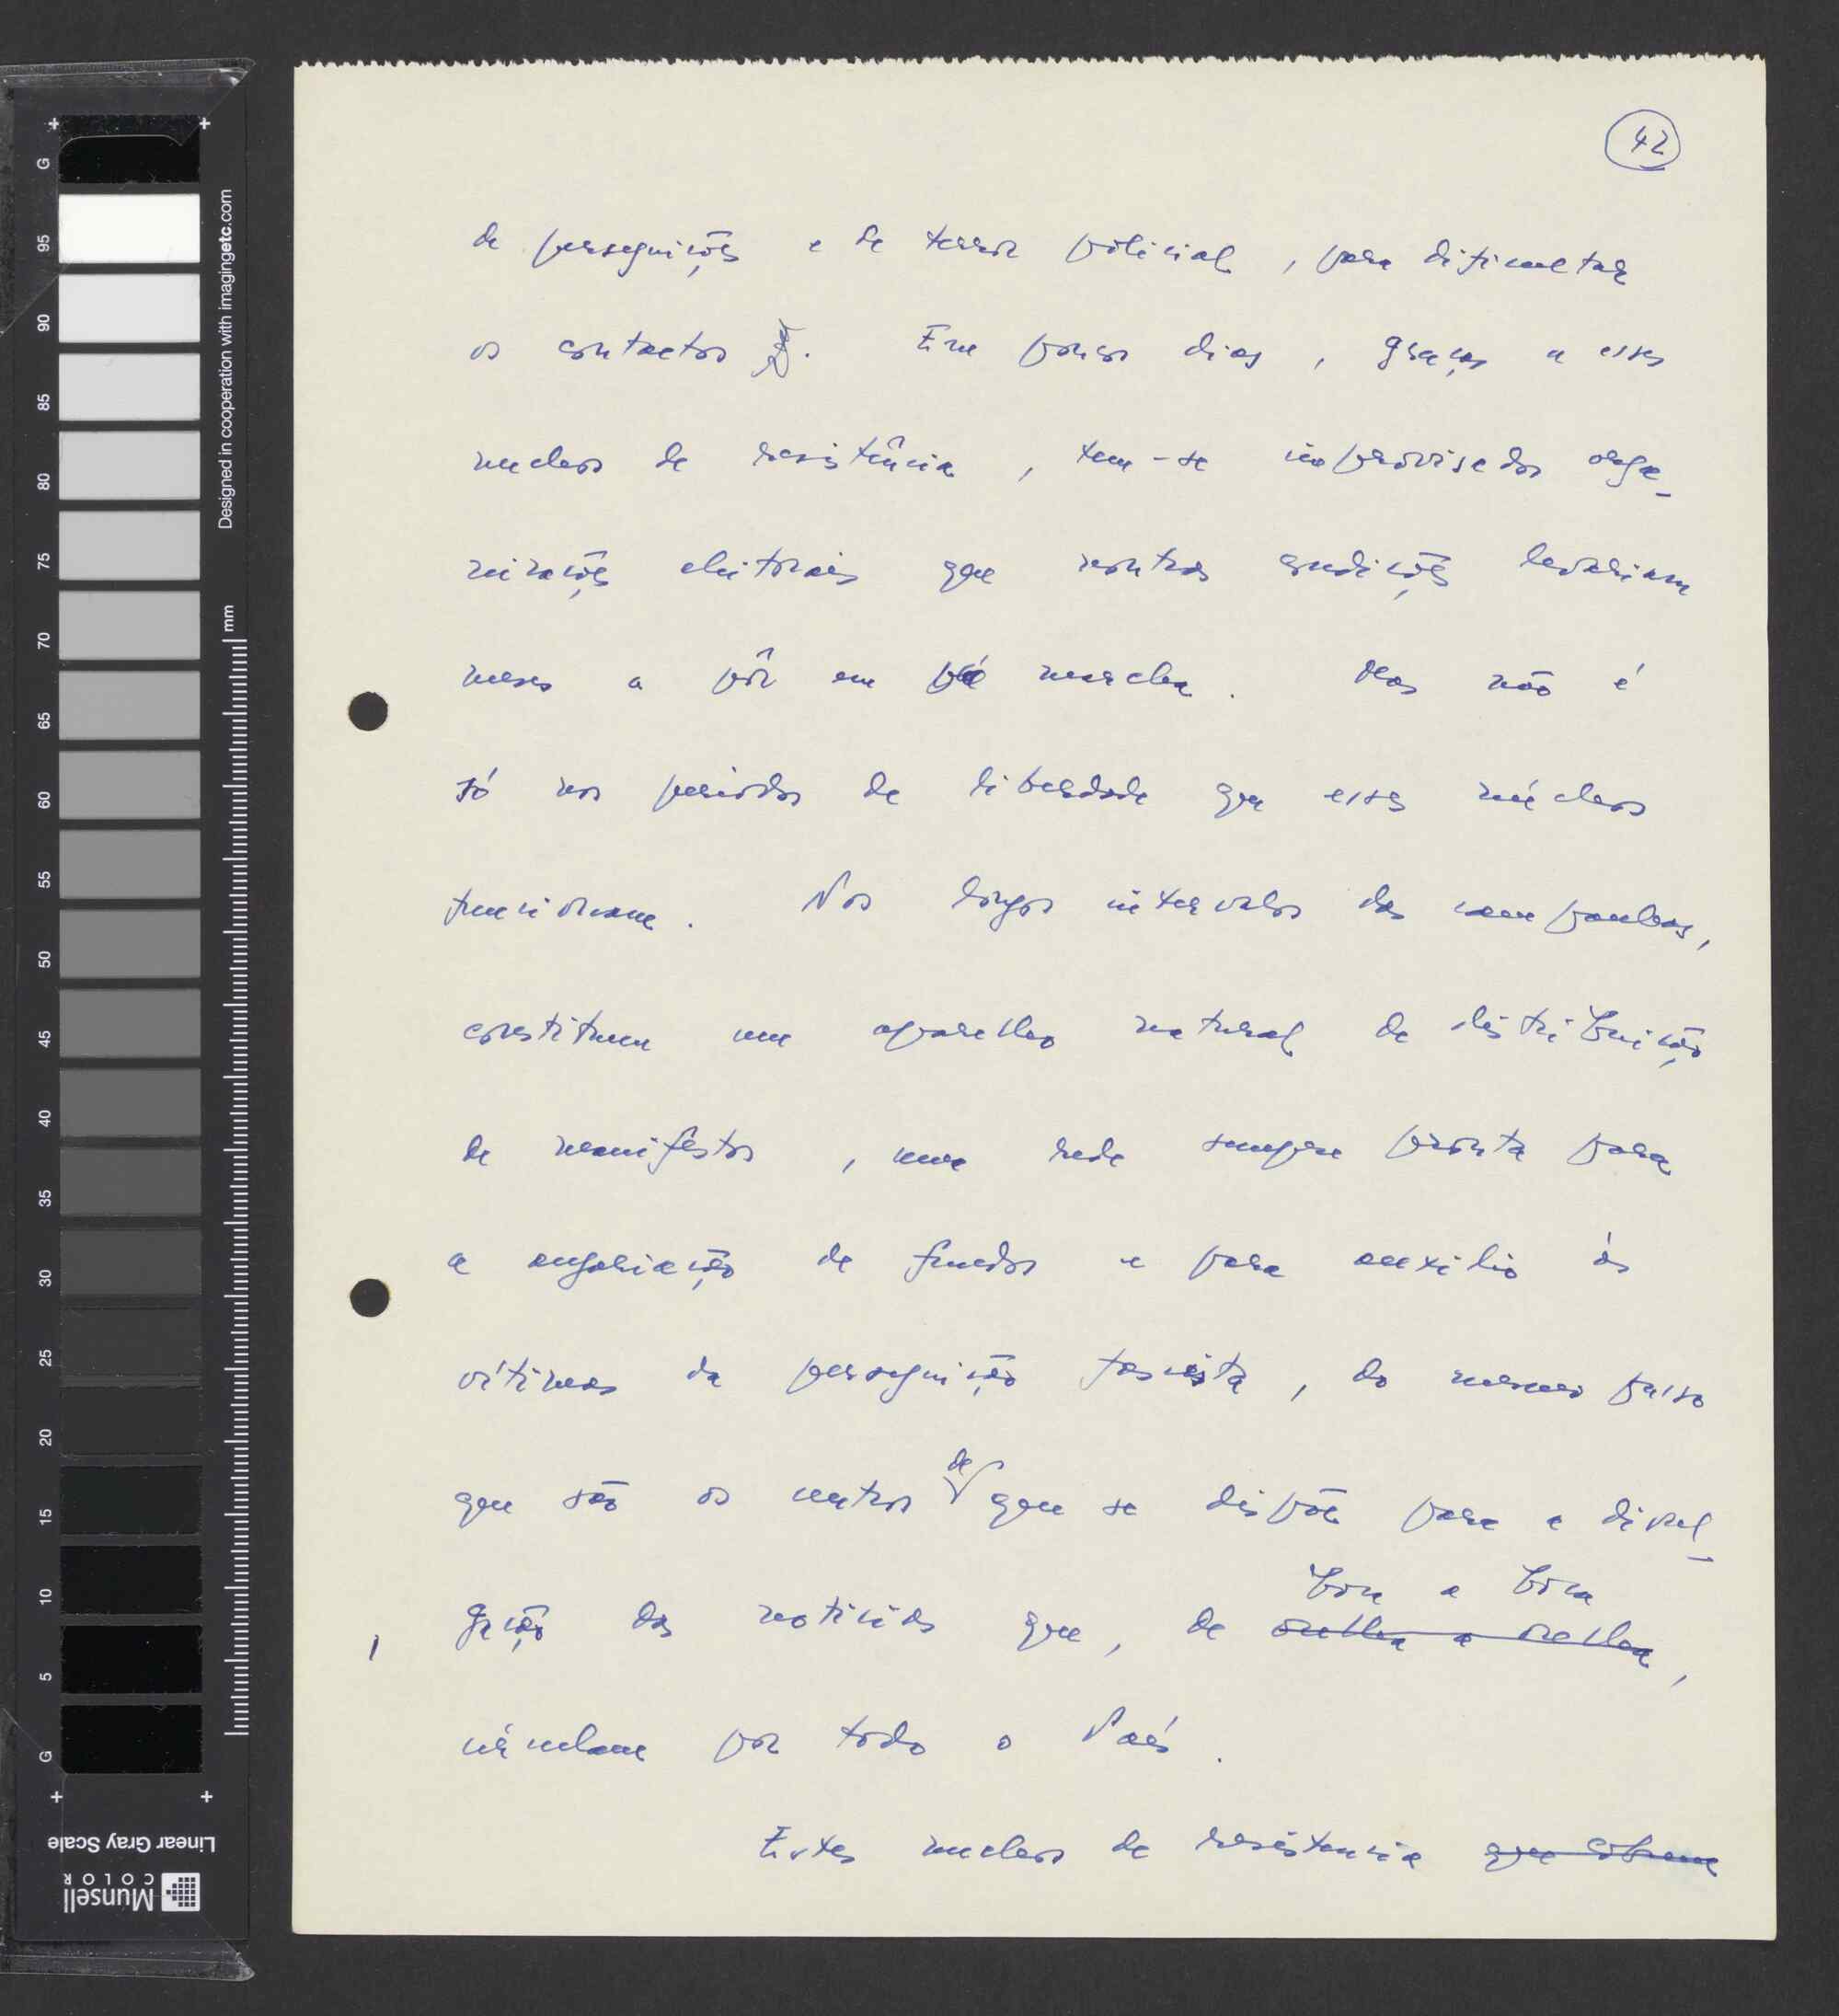 42
de perseguições e de terror policial, para dificultar
os contactos. Em poucos dias, graças a esses
nucleos de resistência, tem-se improvisado orga-
nizações eleitorais que noutras condições levariam
meses a pôr em pé marcha. Mas não é
só nos periodos de liberdade que esses núcleos
funcionam. Nos longos intervalos das campanhas,
constituem um aparelho natural de distribuição
de manifestos, uma rede sempre pronta para
a angariação de fundos e para auxilio às
vítimas da perseguição fascista, do mesmo passo
de
que são os centros que se dispõe para a divul-
boca a boca
gação das noticias que, de orelha a orelha,
circulam por todo o País.
Estes nucleos de resistencia que cobrem
G 95 90 85 80 75 70 65 60 55 50 45 40 35 30 25 20 15 10 5 G
Designed in cooperation with imagingetc.com
mm
Linear Gray Scale
Munsell
COLOR